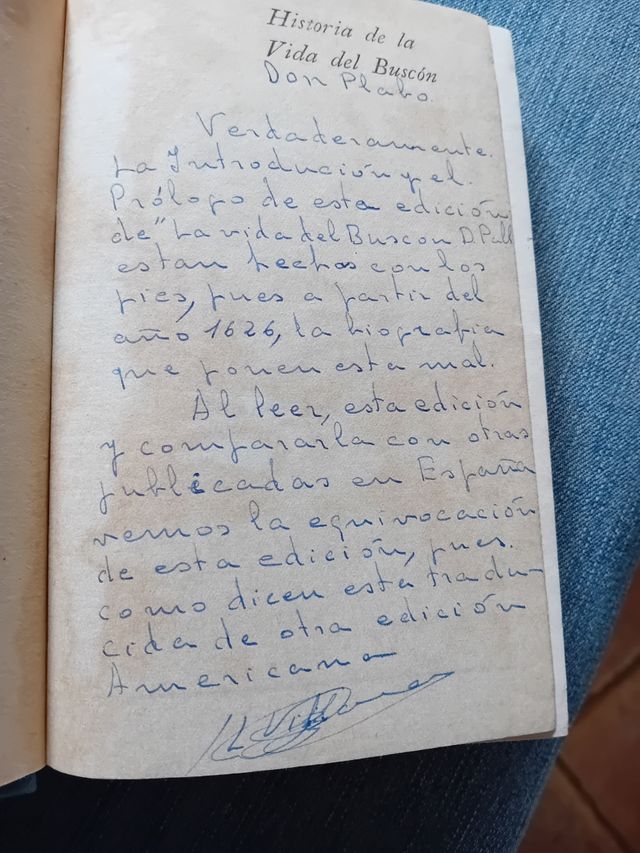 Historia de la
Vida del Buscón
Don Plabo.
Verdaderamente.
La Introdución y el.
Prólogo de esta edición
de "La vida del Buscon D. Pabl
estan hechos con los
pies, pues a partir del
año 1626, la biografia
que ponen esta mal.
Al leer, esta edición
y compararla con otras
publicadas en España
vemos la equivocación
de esta edición, pues.
como dicen esta tradu-
cida de otra edición
Americana